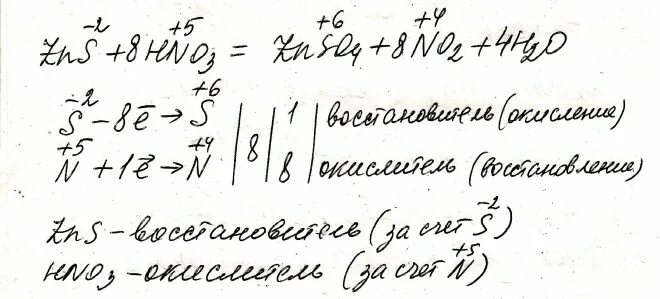 ZnS⁻² + 8HN⁺⁵O₃ = ZnS⁺⁶O₄ + 8N⁺⁴O₂ + 4H₂O
S⁻² - 8ē → S⁺⁶ | | 1 | восстановитель (окисление)
N⁺⁵ + 1ē → N⁺⁴ | 8 | 8 | окислитель (восстановление)
ZnS - восстановитель (за счет S⁻²)
HNO₃ - окислитель (за счет N⁺⁵)